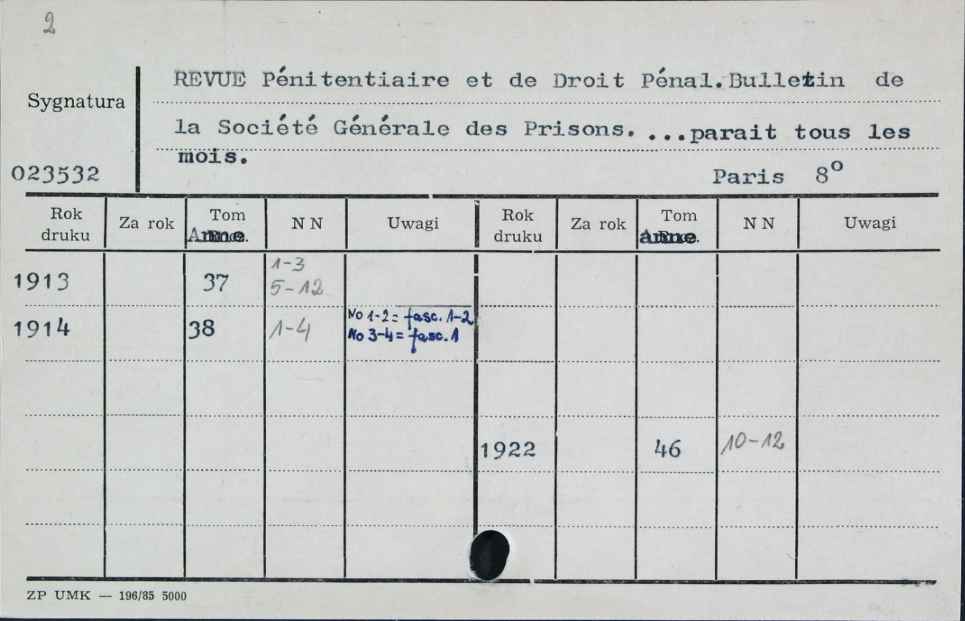 2
REVUE Pénitentiaire et de Droit Pénal. Bulletin de
Sygnatura
la Société Générale des Prisons. ...parait tous les
mois.
023532
Paris 8º
Rok druku Za rok Tom Anne N N Uwagi Rok druku Za rok Tom anne N N Uwagi
1913 37 1-3
5-12
1914 38 1-4 No 1-2 = fasc. 1-2
No 3-4 = fasc. 1
1922 46 10-12
ZP UMK — 196/85 5000